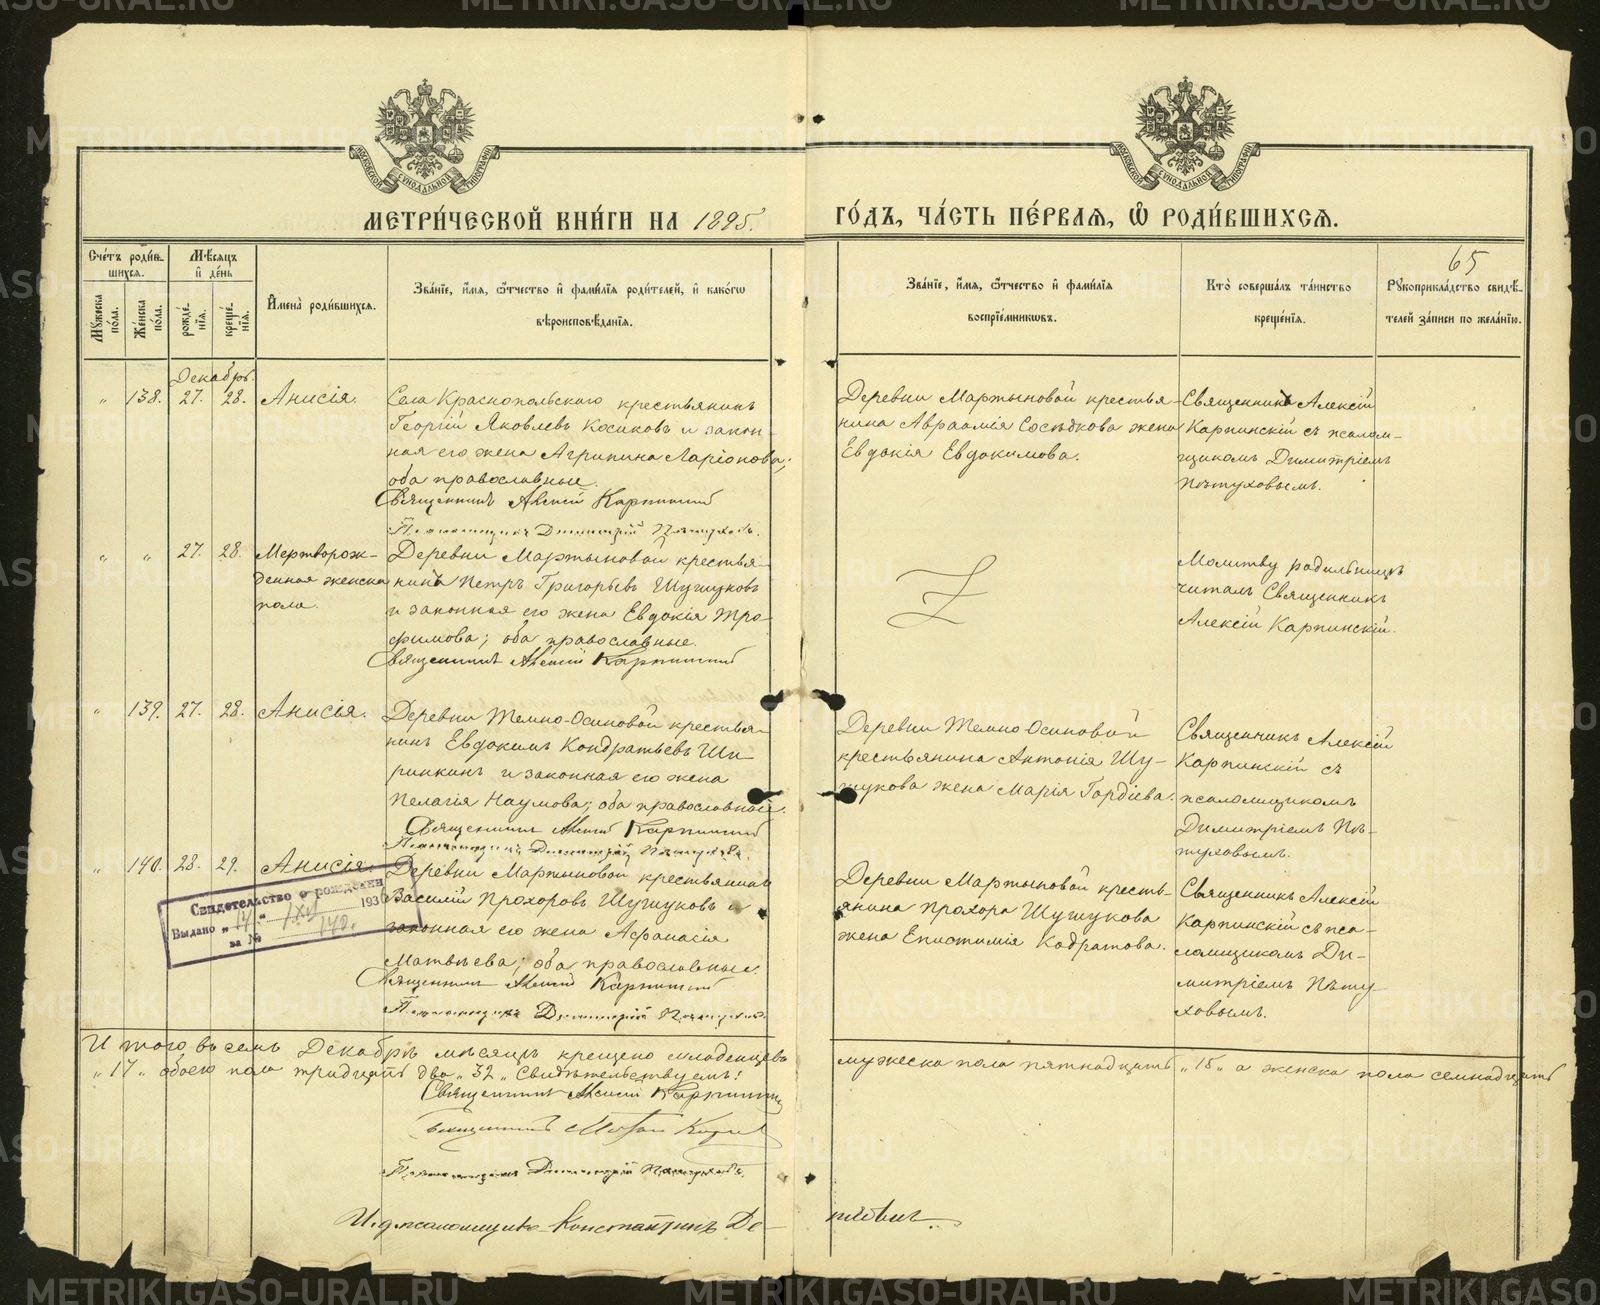 МЕТРИ́ЧЕСКОЙ КНИ́ГИ НА 1895.
ГО́ДЪ, ЧА́СТЬ ПЕ́РВАѦ, Ѽ РОДИ́ВШИХСѦ.
65
Сче́тъ роди́в-
шихся.
Мѣ́сяцъ
и҆ де́нь
Му́жеска по́ла.
Же́нска по́ла.
рожде́нїѧ.
креще́нїѧ.
И҆мена̀ роди́вшихсѧ.
Зва́нїе, и҆́мѧ, ѻ҆́тчество и҆ фами́лїѧ роди́телей, и҆ како́гѡ
вѣроисповѣ́данїѧ.
Зва́нїе, и҆́мѧ, ѻ҆́тчество и҆ фами́лїѧ
воспрїе́мникѡвъ.
Кто̀ соверша́лъ та́инство
креще́нїѧ.
Рꙋкоприкла́дство свидѣ́-
телей за́писи по жела́нїю.
Декабрь.
„ 138. 27. 28. Анисія.
Села Краснопольскаго крестьянинъ
Георгій Яковлевъ Косиковъ и закон-
ная его жена Агрипина Ларіонова;
оба православные.
Священникъ Алексій Карпинскій
Псаломщикъ Димитрій Пѣтуховъ.
Деревни Мартыновой крестья-
нина Авраамія Сосѣдкова жена
Евдокія Евдокимова.
Священникъ Алексій
Карпинскій съ псалом-
щикомъ Димитріемъ
Пѣтуховымъ.
„ „ 27. 28. Мертворож-
денная женска
пола.
Деревни Мартыновой крестья-
нинъ Петръ Григорьевъ Шушуковъ
и законная его жена Евдокія Тро-
фимова; оба православные.
Священникъ Алексій Карпинскій
Молитву родильницѣ
читалъ Священникъ
Алексій Карпинскій.
„ 139. 27. 28. Анисія.
Деревни Темно-Осиновой крестья-
нинъ Евдокимъ Кондратьевъ Ши-
ринкинъ и законная его жена
Пелагія Наумова; оба православные.
Священникъ Алексій Карпинскій
Псаломщикъ Димитрій Пѣтуховъ.
Деревни Темно-Осиновой
крестьянина Антонія Шу-
шукова жена Марія Гордіева.
Священникъ Алексій
Карпинскій съ
псаломщикомъ
Димитріемъ Пѣ-
туховымъ.
„ 140. 28. 29. Анисія.
Деревни Мартыновой крестьянинъ
Василій Прохоровъ Шушуковъ и
законная его жена Афанасія
Матвѣева; оба православные.
Священникъ Алексій Карпинскій
Псаломщикъ Димитрій Пѣтуховъ.
Деревни Мартыновой кресть-
янина Прохора Шушукова
жена Епистимія Кодратова.
Священникъ Алексій
Карпинскій съ пса-
ломщикомъ Ди-
митріемъ Пѣту-
ховымъ.
Свидетельство о рождении
Выдано „ 17 „ 193
за № 140.
Итого въ семъ Декабрѣ мѣсяцѣ крещено младенцевъ мужеска пола пятнадцать „15„ а женска пола семнадцать
„17„ обоего пола тридцать два „32„ Свидѣтельствуемъ:
Священникъ Алексій Карпинскій
Священникъ
Псаломщикъ Димитрій Пѣтуховъ.
И.д. псаломщика Константинъ
METRIKI.GASO-URAL.RU